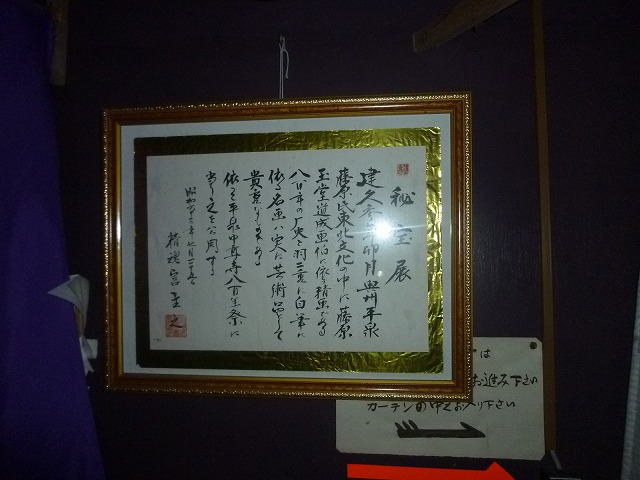 秘宝展
建久参年卯月奥州平泉
藤原氏東北文化の中に藤原
玉堂道成画伯に依る精画である
八百年の歴史と羽二重に白筆に
依る名画は実に芸術品として
貴重なものである
依って平泉中尊寺八百年祭に
当り之を公開する
昭和 年七月二十 日
精魂宮主
は
お進み下さい
カーテンの中え お入り下さい